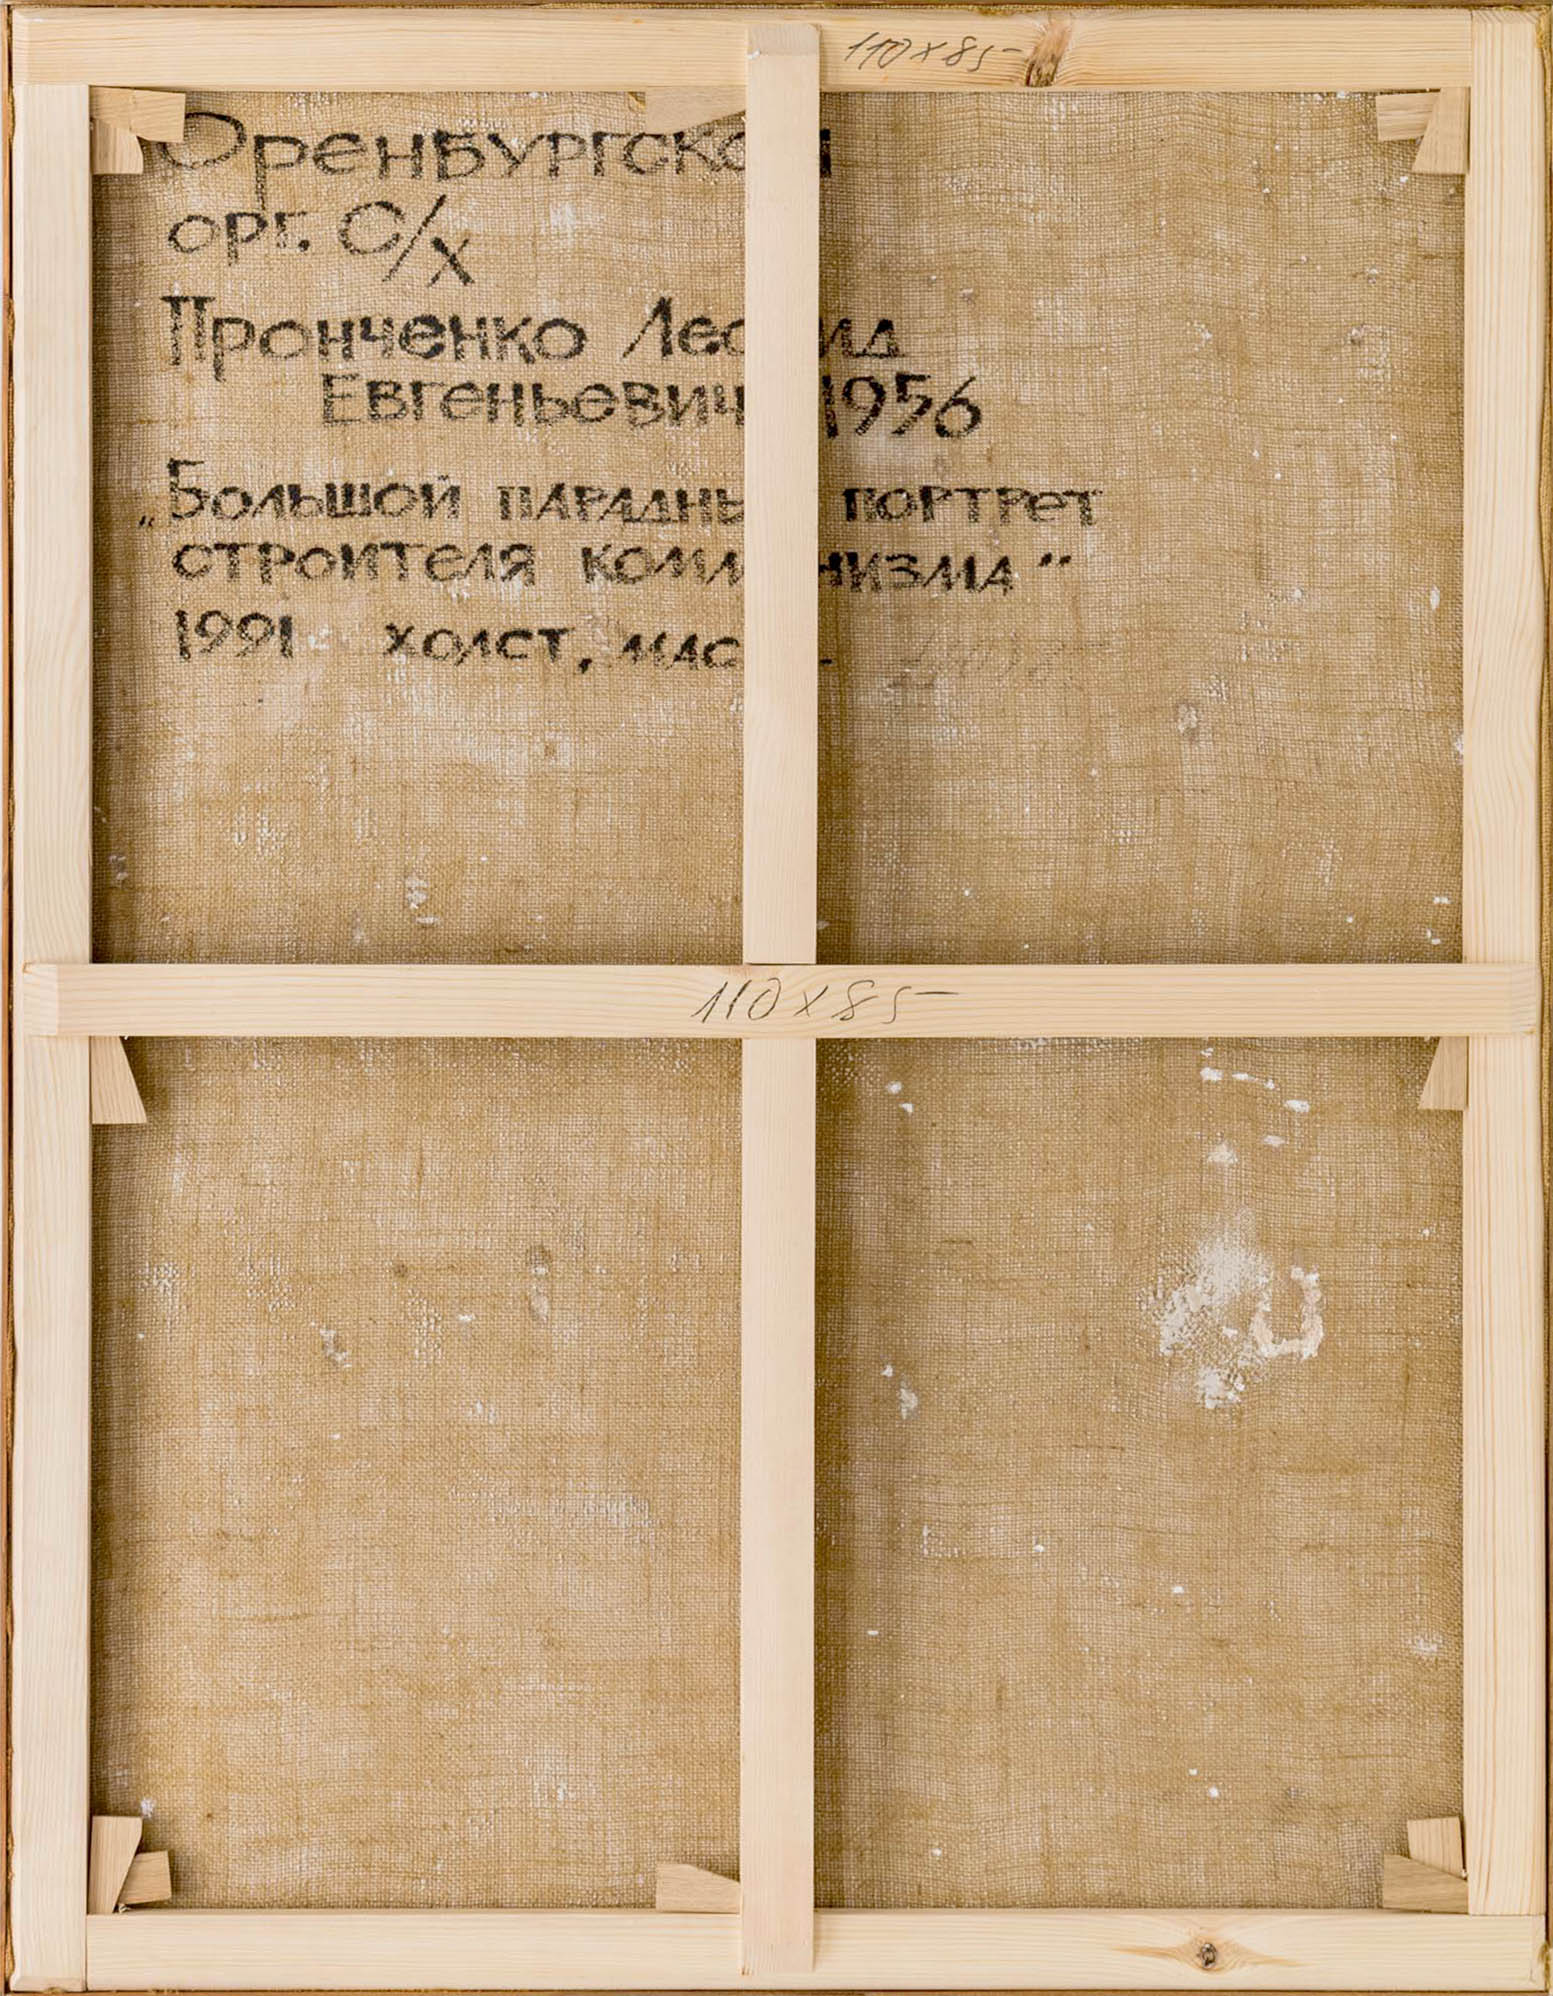 110x85
Оренбургской
орг. С/х
Пронченко Леонид
Евгеньевич 1956
„Большой парадный портрет
строителя коммунизма"
1991 холст, масло.
110x85